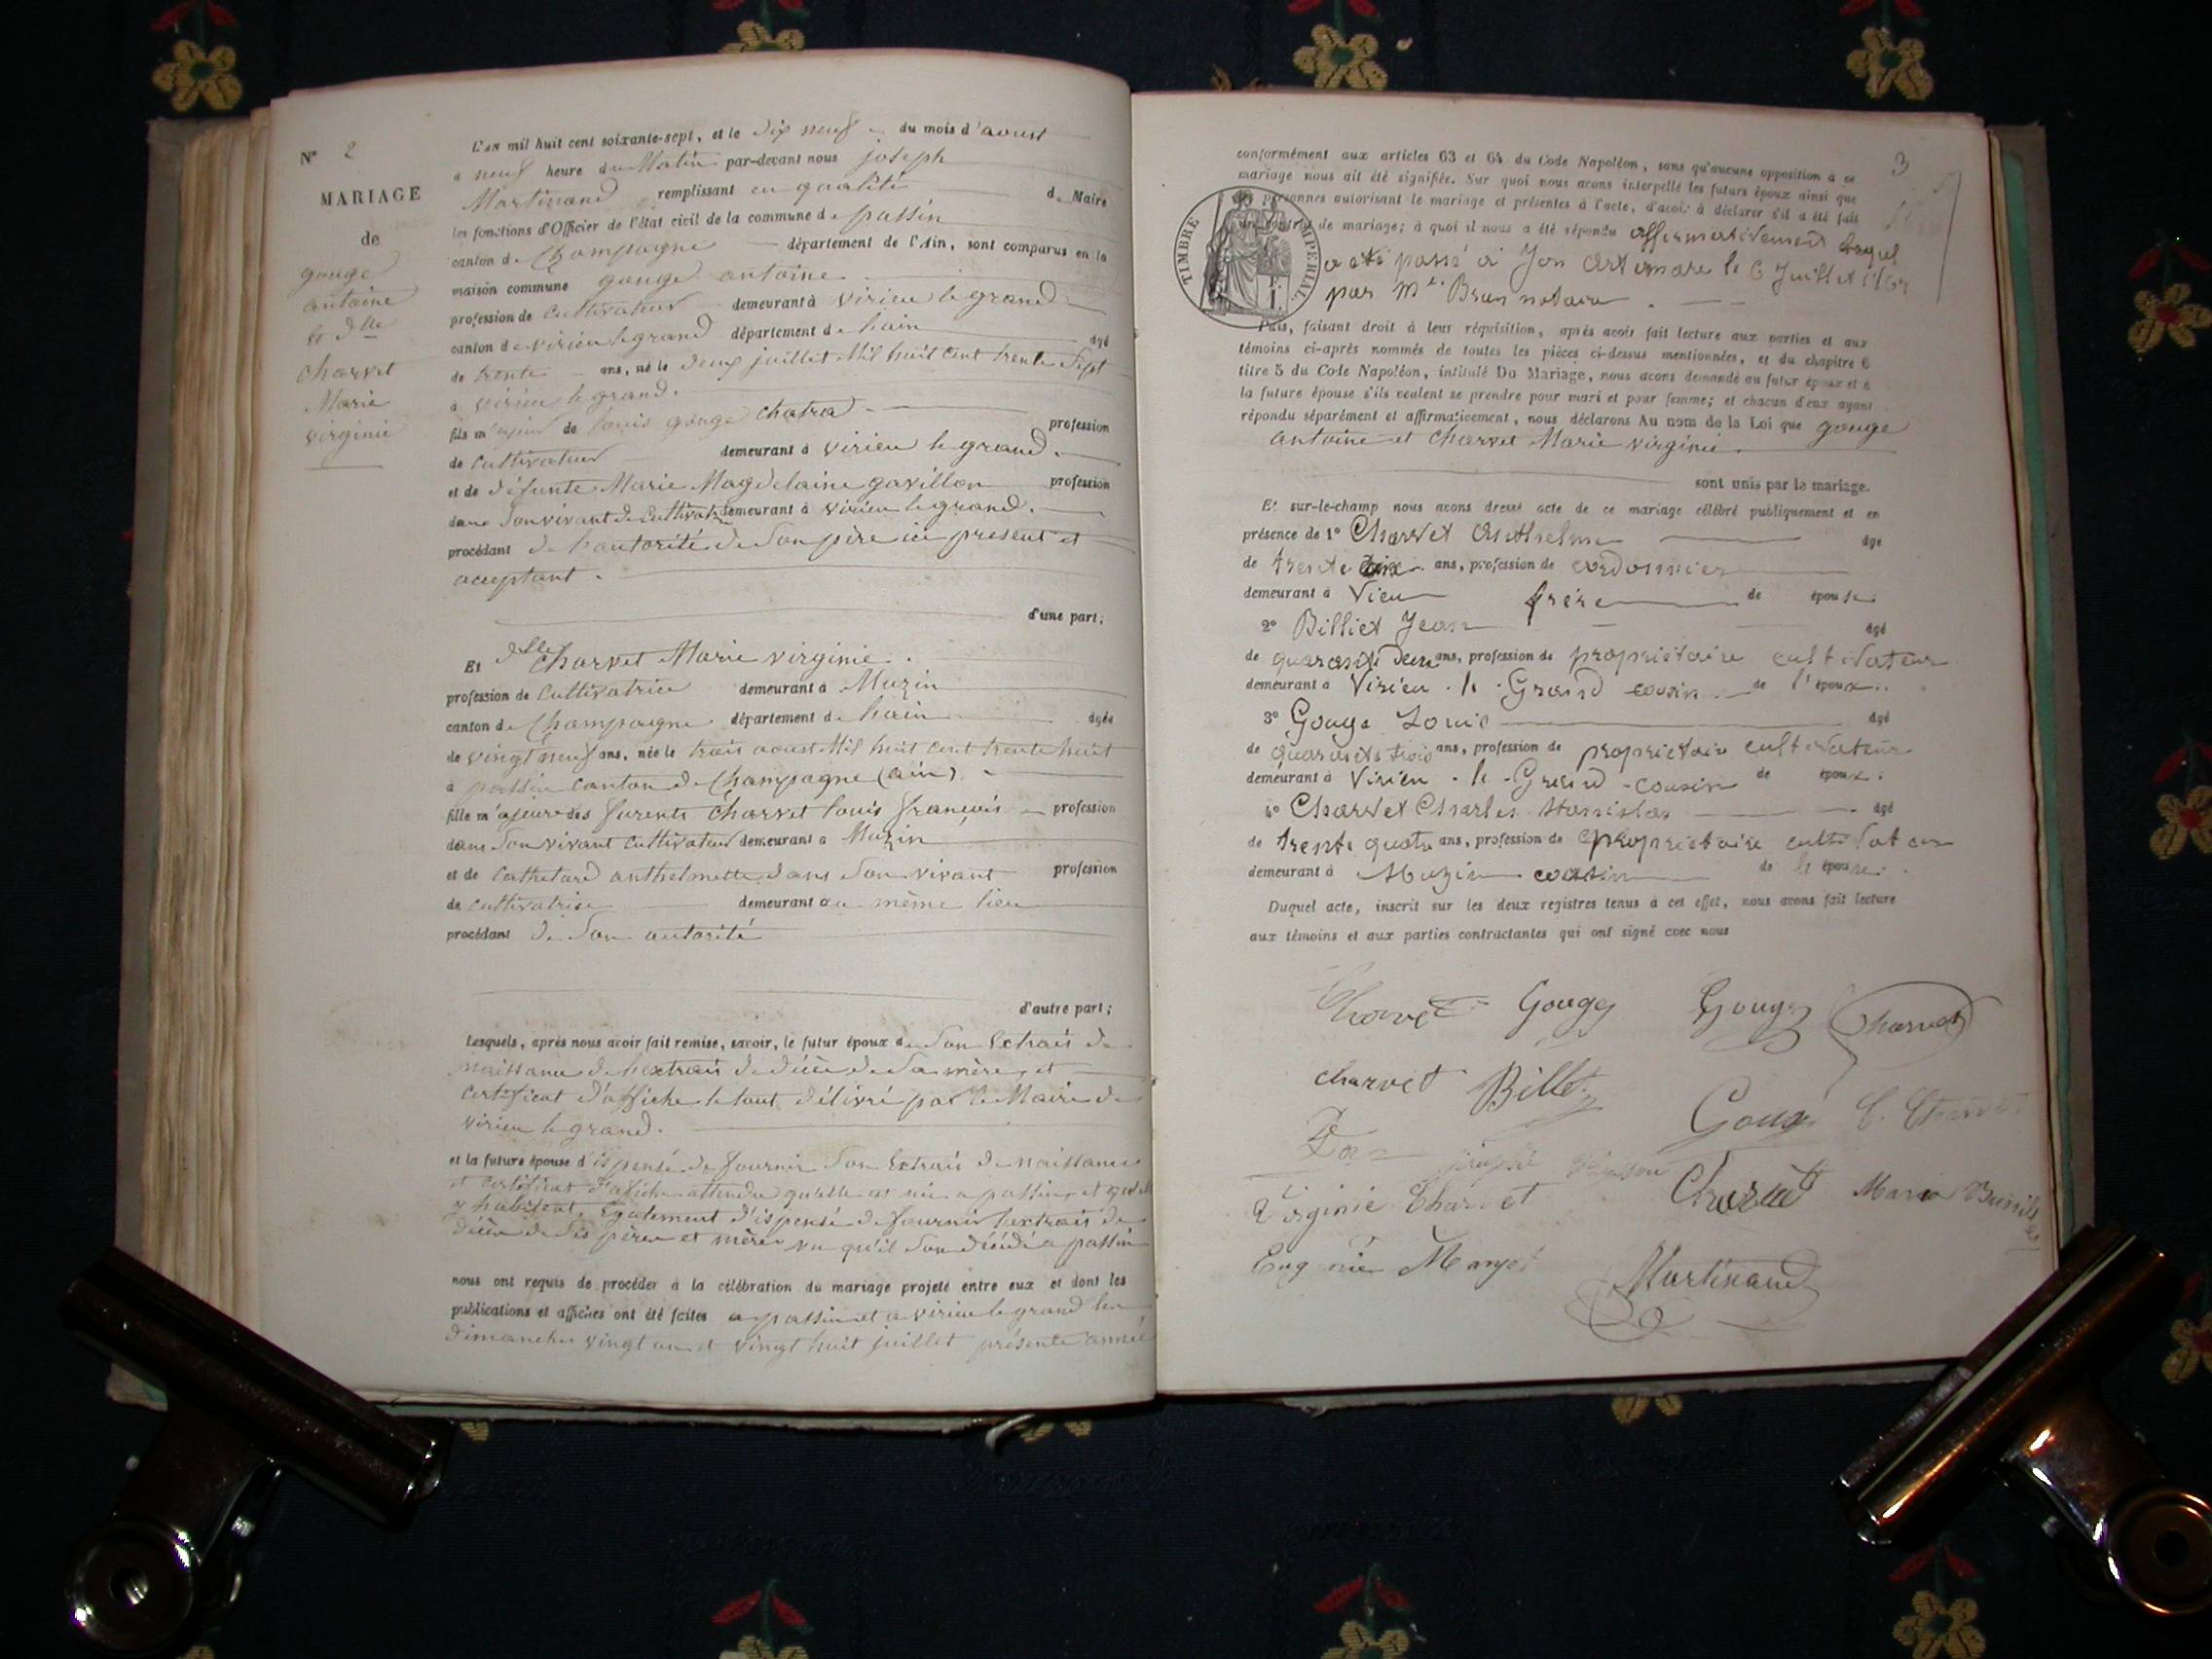 N° 2
MARIAGE
de
gouge
antoine
et dlle
Charvet
Marie
virginie
L'an mil huit cent soixante-sept, et le dix neuf du mois d'aoust
a neuf heure du Matin par-devant nous joseph
Martinand remplissant en qualité de Maire
les fonctions d'Officier de l'état civil de la commune de passin
canton de Champagne département de l'Ain, sont comparus en la
maison commune gouge antoine
profession de Cultivateur demeurant à virieu le grand
canton de virieu le grand département de lain âgé
de trente ans, né le deux juillet Mil huit cent trente Sept
à virieu le grand.
fils majeur de louis gouge chatra profession
de Cultivateur demeurant à virieu le grand.
et de défunte Marie Magdelaine gavillon profession
dans Son vivant de Cultivatrice demeurant à virieu le grand.
procédant de l'autorité de Son père ici présent et
acceptant.
d'une part;
Et dlle Charvet Marie virginie.
profession de Cultivatrice demeurant à Muzin
canton de Champagne département de lain âgée
de vingt neuf ans, née le trois aoust Mil huit cent trente huit
à passin canton de Champagne (ain)
fille majeure des furents Charvet louis françois profession
dans Son vivant Cultivateur demeurant a Muzin
et de Cathetard anthelmette dans Son vivant profession
de Cultivatrise demeurant au même lieu
procédant de Son autorité
d'autre part;
Lesquels, après nous avoir fait remise, savoir, le futur époux de Son Extrait de
naissance de l'extrait de décès de Sa mère, et
Certificat d'affiche le tout délivré par le Maire de
virieu le grand.
et la future épouse dispensé de fournir Son Extrait de naissance
et certificat d'afiche attendu qu'elle est née a passin, et qu'elle
y habitent, Egalement d'ispensé de fournir l'extrait de
décès de Ses père et mère vu qu'il Son décédé a passin
nous ont requis de procéder à la célébration du mariage projeté entre eux et dont les
publications et affiches ont été faites a passin et a virieu le grand les
dimanches vingt un et vingt huit juillet présente année
3
conformément aux articles 63 et 64 du Code Napoléon, sans qu'aucune opposition à ce
mariage nous ait été signifiée. Sur quoi nous avons interpellé les futurs époux ainsi que
les personnes autorisant le mariage et présentes à l'acte, d'avoir à déclarer s'il a été fait
un contrat de mariage; à quoi il nous a été répondu affirmativement lequel
TIMBRE IMPERIAL
a été passé à Yon Artemare le 6 Juillet 1867
par Me. Brun notaire.
Puis, faisant droit à leur réquisition, après avoir fait lecture aux parties et aux
témoins ci-après nommés de toutes les pièces ci-dessus mentionnées, et du chapitre 6
titre 5 du Code Napoléon, intitulé Du Mariage, nous avons demandé au futur époux et à
la future épouse s'ils veulent se prendre pour mari et pour femme; et chacun d'eux ayant
répondu séparément et affirmativement, nous déclarons Au nom de la Loi que gouge
antoine et Charvet Marie virginie.
sont unis par le mariage.
Et sur-le-champ nous avons dressé acte de ce mariage célébré publiquement et en
présence de 1° Charvet Anthelme âge
de trente ans, profession de cordonnier
demeurant à Vieu frère de épouse.
2° Billiet Jean âgé
de quarante deux ans, profession de propriétaire cultivateur
demeurant à Virieu-le-Grand cousin de l'époux.
3° Gouge Louis âgé
de quarante trois ans, profession de propriétaire cultivateur
demeurant à Virieu-le-Grand-cousin de époux.
4° Charvet Charles Stanislas âgé
de trente quatre ans, profession de propriétaire cultivateur
demeurant à Muzin cousin de l'épouse.
Duquel acte, inscrit sur les deux registres tenus à cet effet, nous avons fait lecture
aux témoins et aux parties contractantes qui ont signé avec nous
Charvet Gouge Gouge Charvet
charvet Billet
Gouge C. Charvet
Virginie Charvet Charvet Marie
Eugénie
Martinand